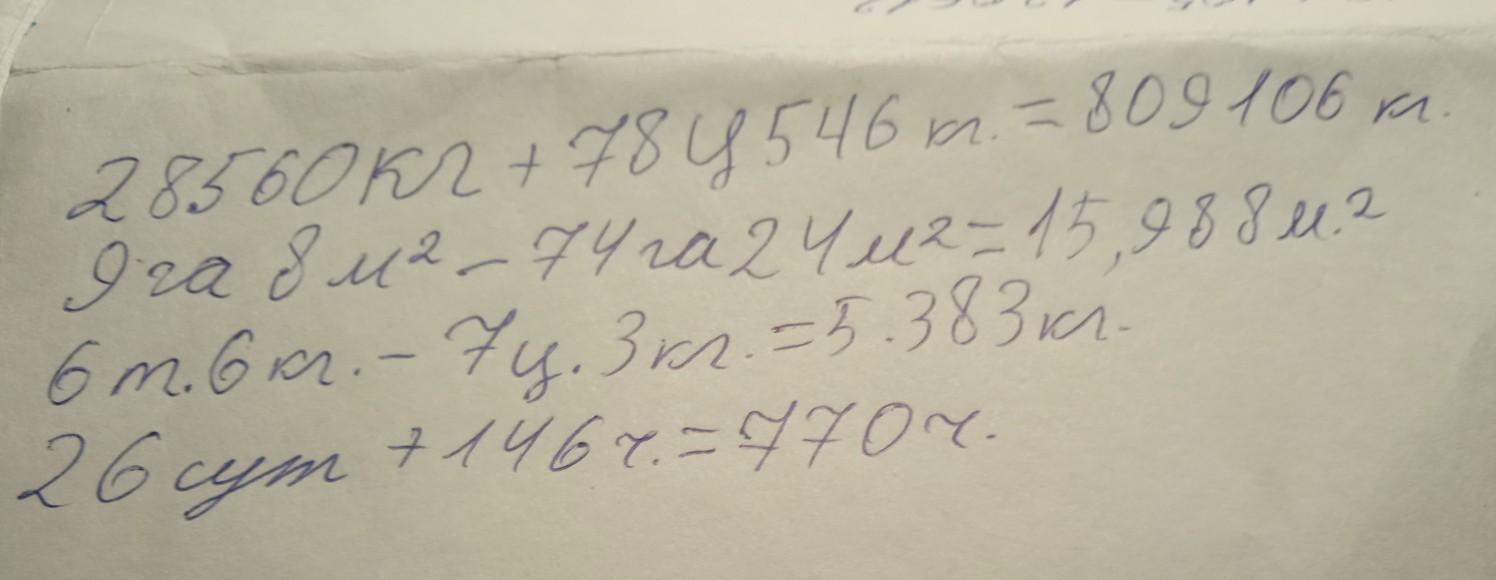 28560кг + 78ц 546 кг. = 809106 кг.
9га 8м² - 74га 24м² = 15,988м.²
6т.6кг. - 7ц.3кг. = 5.383кг.
26сут + 146ч. = 770ч.